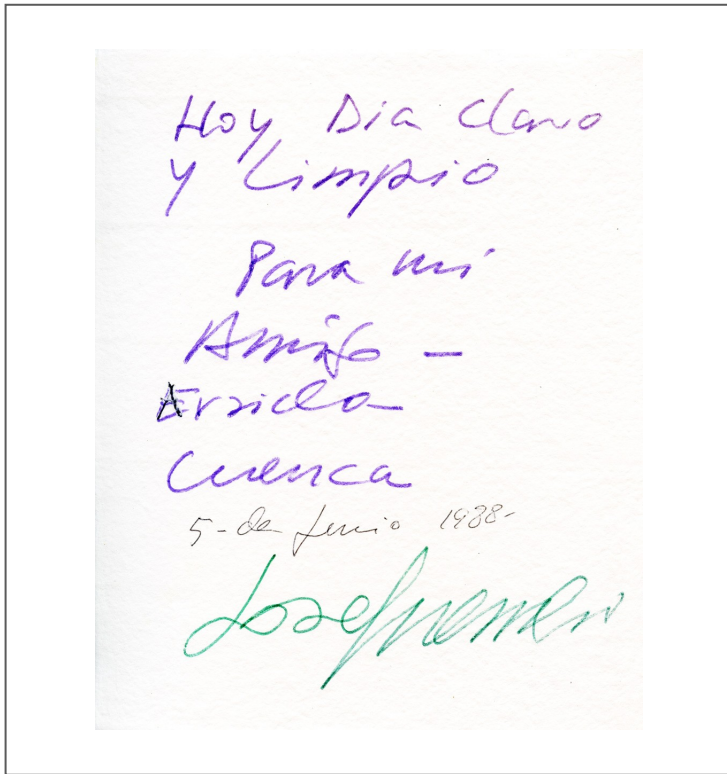 Hoy Dia Claro
y Limpio
Para mi
Amigo -
Cuenca
5-de Junio 1988-
Jose Guerrero